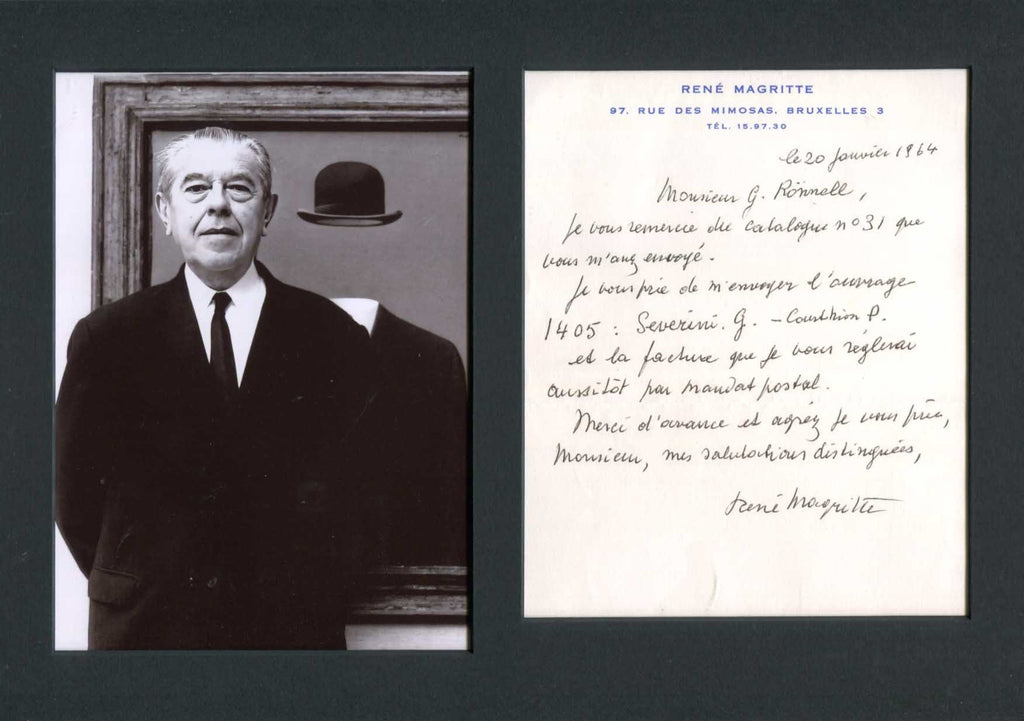 RENÉ MAGRITTE
97. RUE DES MIMOSAS. BRUXELLES 3
TÉL. 15.97.30
le 20 janvier 1964
Monsieur G. Rönnell,
Je vous remercie du catalogue n° 31 que
vous m'avez envoyé.
Je vous prie de m'envoyer l'ouvrage
1405 : Severini. G. — Courthion P.
et la facture que je vous réglerai
aussitôt par mandat postal.
Merci d'avance et agréez je vous prie,
Monsieur, mes salutations distinguées,
René Magritte